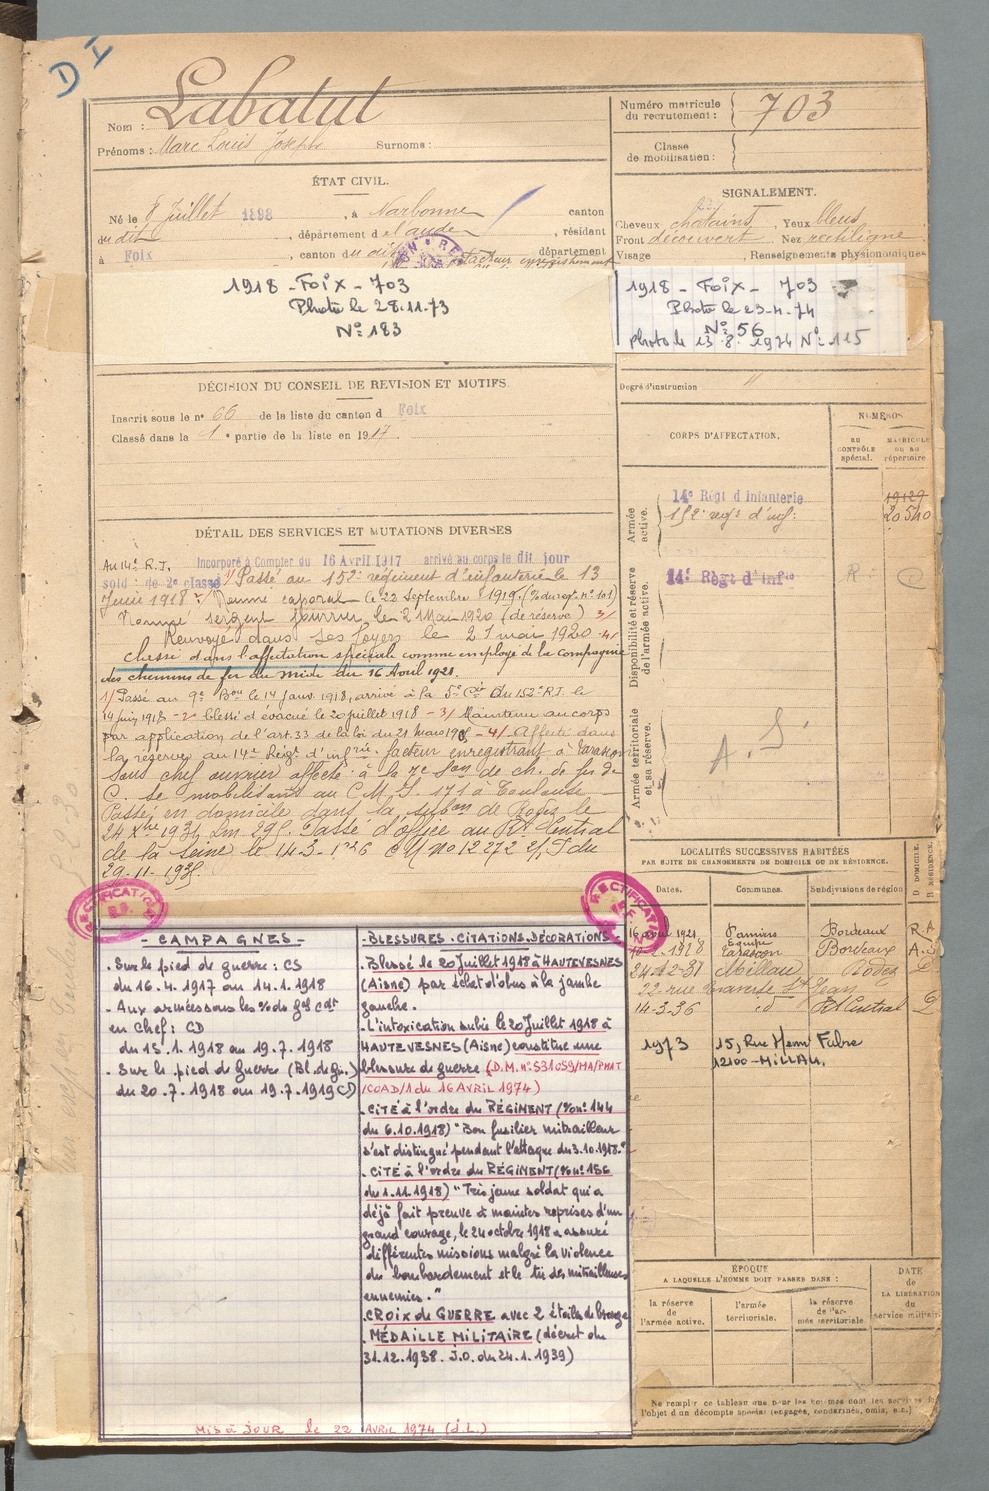 D I
Nom : Labatut
Prénoms : Marc Louis Joseph Surnoms :
Numéro matricule du recrutement : 703
Classe de mobilisation :
ÉTAT CIVIL.
Né le 8 Juillet 1898, à Narbonne canton
du dit, département de l'aude, résidant
à Foix, canton du dit département
facteur enregistrement
SIGNALEMENT.
Cheveux chatains, Yeux bleus
Front découvert Nez rectiligne
Visage , Renseignements physionomiques
1918 - FOIX - 703
Photo le 28.11.73
N° 183
1918 - FOIX - 703
Photo le 23-4-74
N° 56
photo le 13.8.1974 N° 115
Degré d'instruction "
DÉCISION DU CONSEIL DE REVISION ET MOTIFS.
Inscrit sous le n° 66 de la liste du canton d Foix
Classé dans la 1e partie de la liste en 1917.
DÉTAIL DES SERVICES ET MUTATIONS DIVERSES
Au 14e R.I. Incorporé à Compter du 16 Avril 1917 arrivé au corps le dit jour
sold : de 2e classe 1/ Passé au 152e régiment d'infanterie le 13
Juin 1918 2/ Nommé caporal le 22 Septembre 1919. (% du reg. n° 101)
Nommé sergent fourrier le 2 Mai 1920 (de réserve) 3/
Renvoyé dans ses foyers le 21 mai 1920 4/
Classé dans l'affectation spéciale comme employé de la Compagnie
des chemins de fer du midi du 16 Avril 1921.
1/ Passé au 9e Bon le 14 Janv. 1918, arrivé à la 5e Cie du 152e R.I. le
14 juin 1918 - 2/ blessé et évacué le 20 juillet 1918 - 3/ Maintenu au corps
par application de l'art. 33 de la loi du 21 mars 1905 - 4/ Affecté dans
la réserve au 14e Régt d'infrie facteur enregistrant à Tarascon
Sous chef ouvrier affecté à la 7e Son de ch. de fer de
C. se mobilisant au C.M.I. 171 à Toulouse
Passé en domicile dans la subon de Rodez le
24 Xbre 1931 Passé d'office au Rt Central
de la Seine le 14-3-1936 CM no 12272 2/ du
29-11-1935.
CORPS D'AFFECTATION.
NUMÉROS
AU CONTRÔLE spécial.
MATRICULE ou au répertoire
Armée active.
14e Régt d Infanterie
152e regt d'inf:
19129
20540
Disponibilité et réserve de l'armée active.
14e Régt d'Infie
R
Armée territoriale et sa réserve.
A. S
LOCALITÉS SUCCESSIVES HABITÉES
PAR SUITE DE CHANGEMENTS DE DOMICILE OU DE RÉSIDENCE.
Dates. Communes. Subdivisions de région D DOMICILE. R RÉSIDENCE.
16 avril 1921 Pamiers Bordeaux R.A
10-2-1928 Tarascon Bordeaux A.S
24-12-31 Millau Rodez D
22 rue traverse St Jean
14-3-36 d° Rt Central D
1973 15, Rue Henri Fabre
12100 - MILLAU.
RECTIFICATION
R.F.
RECTIFICATION
R.F.
- CAMPAGNES -
. Sur le pied de guerre : CS
du 16.4.1917 au 14.1.1918
- Aux armées sous les % du Gal Cdt
en Chef : CD
du 15.1.1918 au 19.7.1918
- Sur le pied de Guerre (Bl. de Gu.)
du 20.7.1918 au 19.7.1919 CD
- BLESSURES . CITATIONS . DÉCORATIONS
. Blessé le 20 Juillet 1918 à HAUTEVESNES
(Aisne) par éclat d'obus à la jambe
gauche.
. L'intoxication subie le 20 Juillet 1918 à
HAUTEVESNES (Aisne) constitue une
blessure de guerre (D.M. n° 531059/MA/PMAT
/COAD/1 du 16 AVRIL 1974)
. CITÉ à l'ordre du RÉGIMENT (% n° 144
du 6.10.1918) "Bon fusilier mitrailleur
s'est distingué pendant l'attaque du 3.10.1918."
. CITÉ à l'ordre du RÉGIMENT (% n° 156
du 1.11.1918) "Très jeune soldat qui a
déjà fait preuve à maintes reprises d'un
grand courage, le 24 octobre 1918 a assuré
différentes missions malgré la violence
du bombardement et le tir des mitrailleuses
ennemies."
. CROIX de GUERRE avec 2 étoiles de bronze
. MÉDAILLE MILITAIRE (décret du
31.12.1938. J.O. du 24.1.1939)
MIS à JOUR le 22 AVRIL 1974 (J.L.)
ÉPOQUE
A LAQUELLE L'HOMME DOIT PASSER DANS :
la réserve de l'armée active.
l'armée territoriale.
la réserve de l'armée territoriale.
DATE de LA LIBÉRATION du service militaire
Ne remplir ce tableau que pour les hommes dont les services
l'objet d'un décompte spécial (engagés, condamnés, omis, etc.)